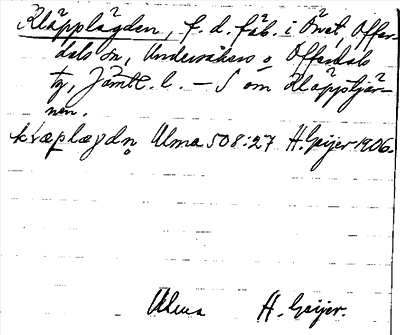 Kläpplägden, f. d. fäb. i Övat Offer-
dals sn, Undersåkers o Offerdals
tg, Jämtl. l. — S om Kläpptjär-
nen.
kvæplægdn̥ Ulma 508:27 H. Geijer 1906.
Ulma H. Geijer.